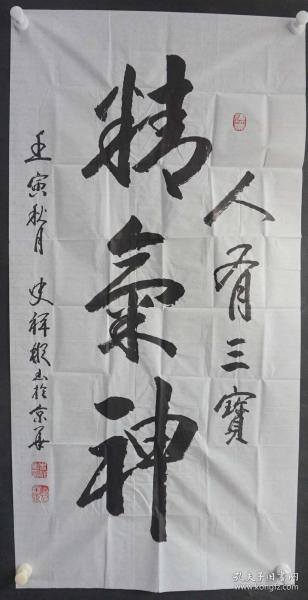 人有三寶
精氣神
壬寅秋月 史祥彬书於京華
孔夫子旧书网